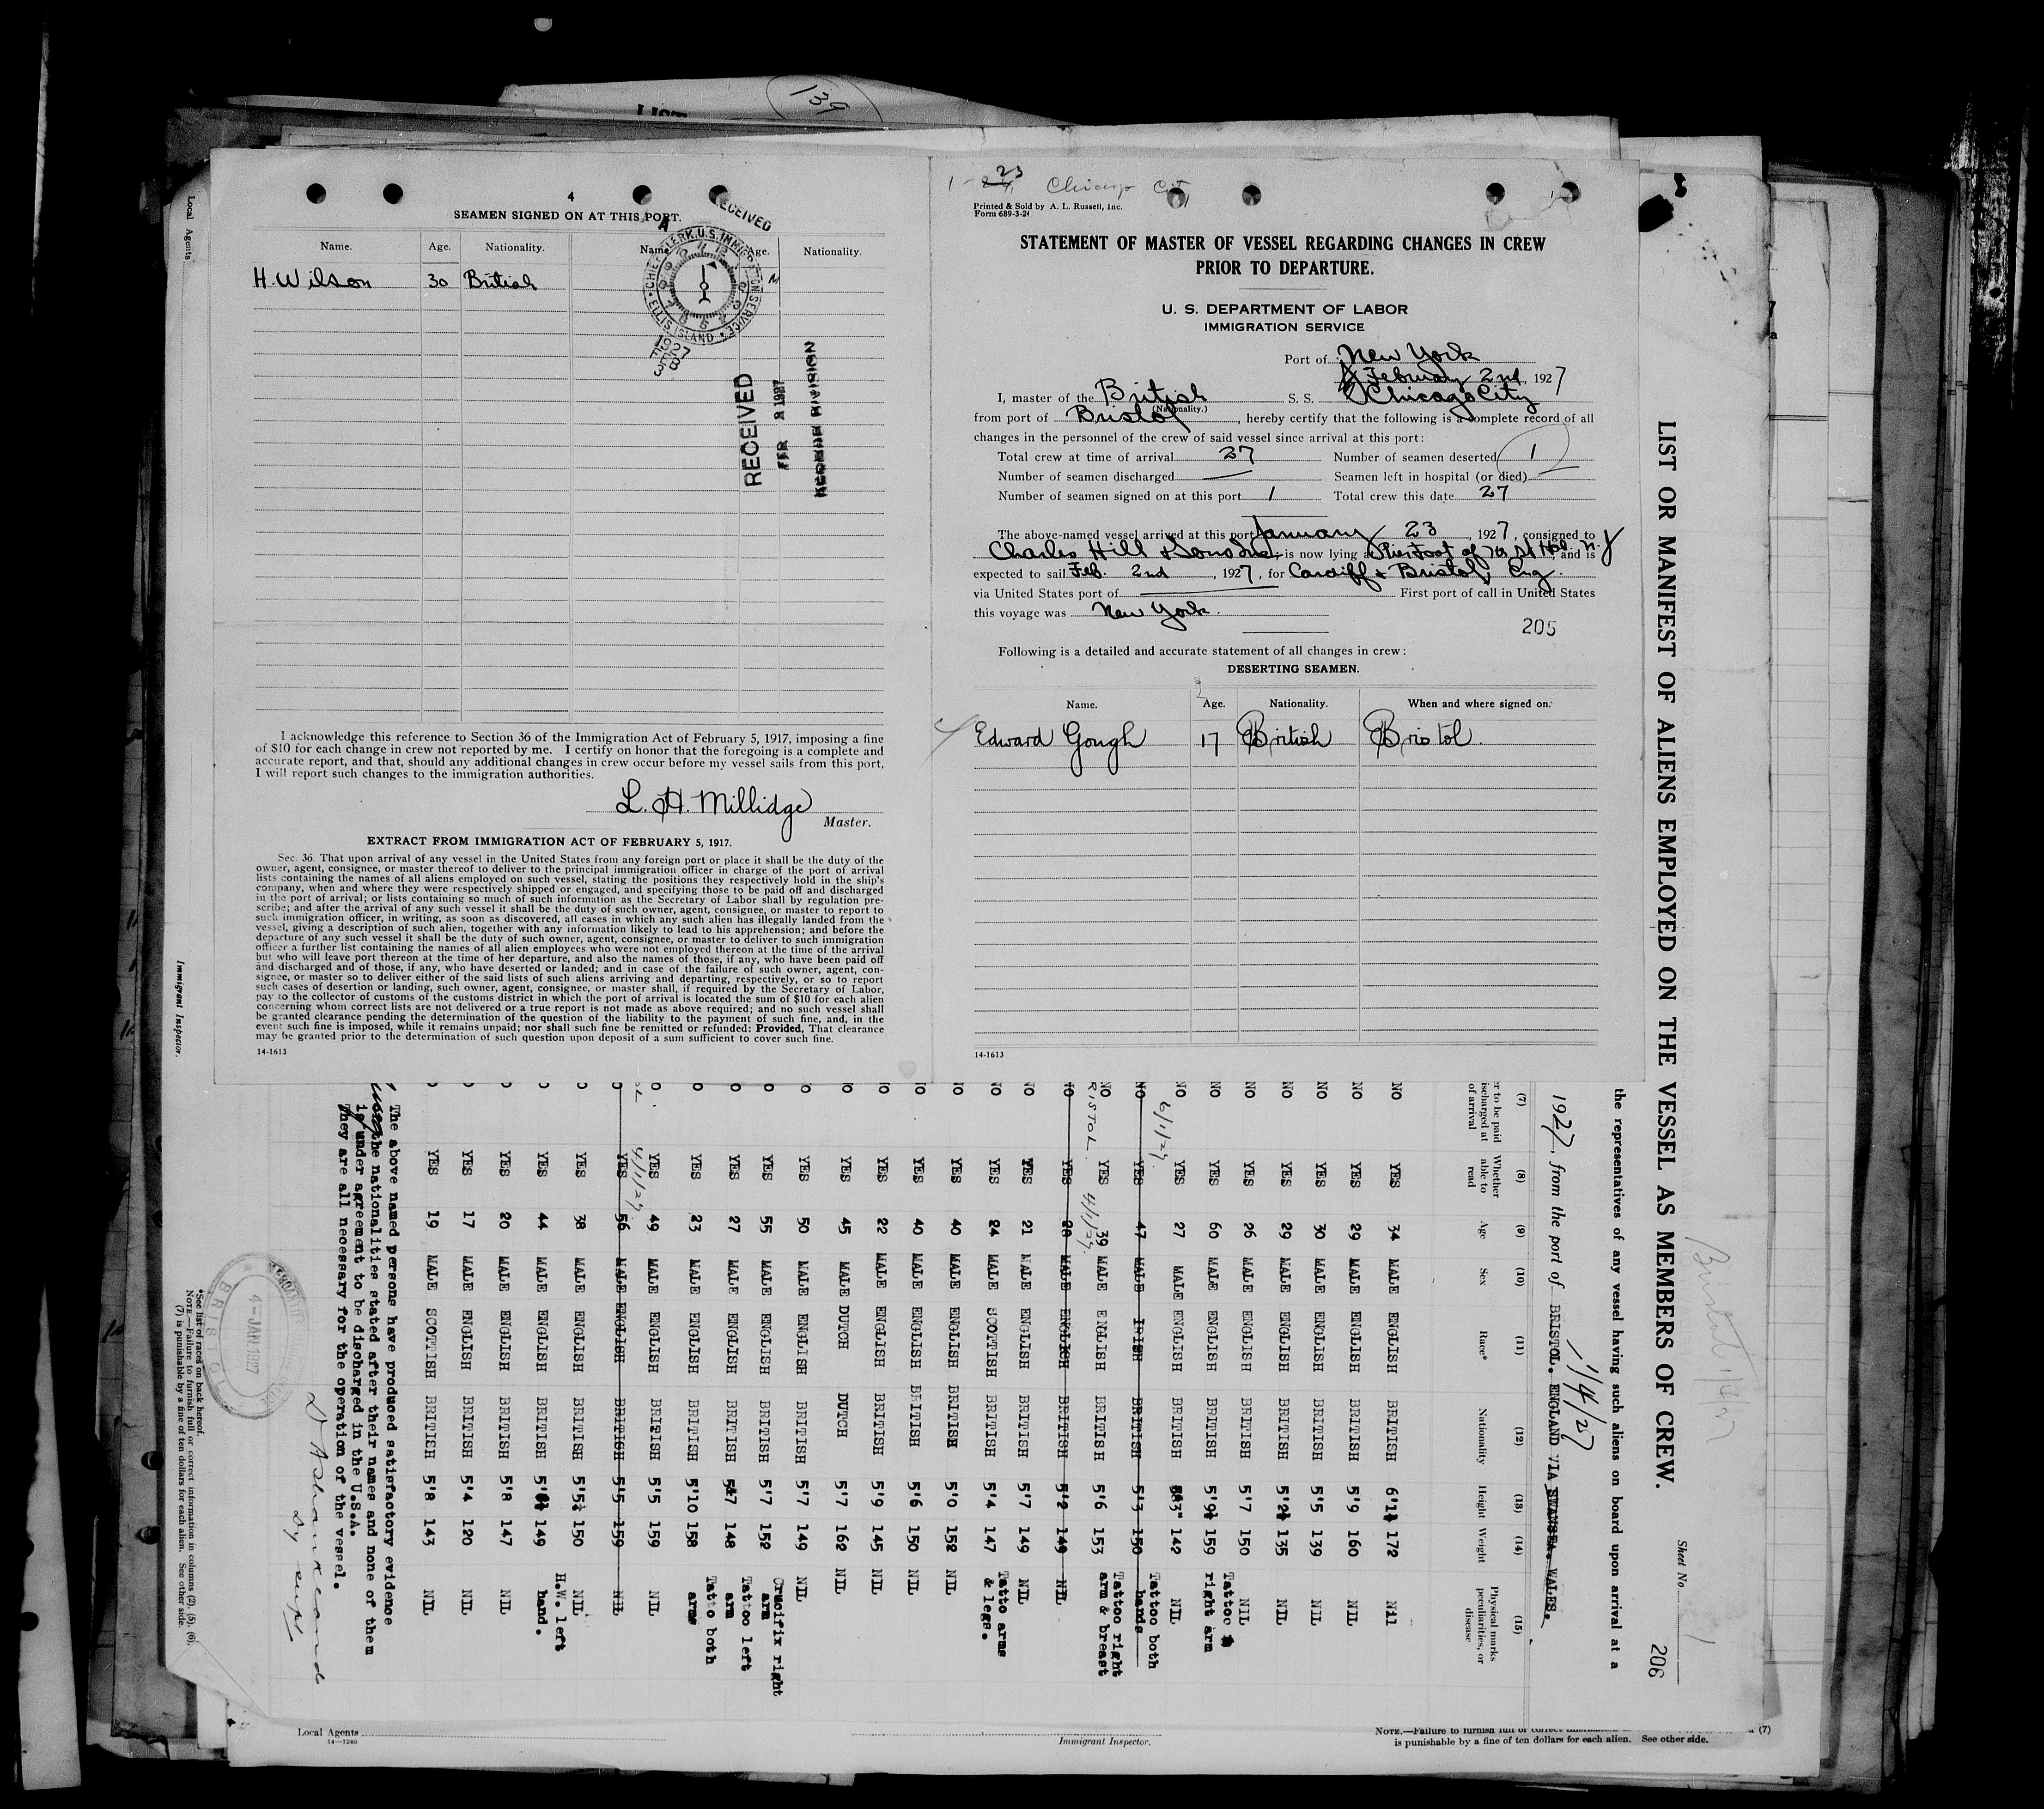 139
LIST
4
SEAMEN SIGNED ON AT THIS PORT.
Name. Age. Nationality. Name. Age. Nationality.
H. Wilson 30 British
RECEIVED
CHIEF CLERK, U.S. IMMIGRATION SERVICE
ELLIS ISLAND
1927
FEB
3
RECEIVED
FEB 3 1927
RECORD DIVISION
I acknowledge this reference to Section 36 of the Immigration Act of February 5, 1917, imposing a fine
of $10 for each change in crew not reported by me. I certify on honor that the foregoing is a complete and
accurate report, and that, should any additional changes in crew occur before my vessel sails from this port,
I will report such changes to the immigration authorities.
L. H. Millidge
Master.
EXTRACT FROM IMMIGRATION ACT OF FEBRUARY 5, 1917.
Sec. 36. That upon arrival of any vessel in the United States from any foreign port or place it shall be the duty of the
owner, agent, consignee, or master thereof to deliver to the principal immigration officer in charge of the port of arrival
lists containing the names of all aliens employed on such vessel, stating the positions they respectively hold in the ship's
company, when and where they were respectively shipped or engaged, and specifying those to be paid off and discharged
in the port of arrival; or lists containing so much of such information as the Secretary of Labor shall by regulation pre-
scribe; and after the arrival of any such vessel it shall be the duty of such owner, agent, consignee, or master to report to
such immigration officer, in writing, as soon as discovered, all cases in which any such alien has illegally landed from the
vessel, giving a description of such alien, together with any information likely to lead to his apprehension; and before the
departure of any such vessel it shall be the duty of such owner, agent, consignee, or master to deliver to such immigration
officer a further list containing the names of all alien employees who were not employed thereon at the time of the arrival
but who will leave port thereon at the time of her departure, and also the names of those, if any, who have been paid off
and discharged and of those, if any, who have deserted or landed; and in case of the failure of such owner, agent, con-
signee, or master so to deliver either of the said lists of such aliens arriving and departing, respectively, or so to report
such cases of desertion or landing, such owner, agent, consignee, or master shall, if required by the Secretary of Labor,
pay to the collector of customs of the customs district in which the port of arrival is located the sum of $10 for each alien
concerning whom correct lists are not delivered or a true report is not made as above required; and no such vessel shall
be granted clearance pending the determination of the question of the liability to the payment of such fine, and, in the
event such fine is imposed, while it remains unpaid; nor shall such fine be remitted or refunded: Provided, That clearance
may be granted prior to the determination of such question upon deposit of a sum sufficient to cover such fine.
14-1613
1-23 Chicago City
Printed & Sold by A. L. Russell, Inc.
Form 689-3-24
STATEMENT OF MASTER OF VESSEL REGARDING CHANGES IN CREW
PRIOR TO DEPARTURE.
U. S. DEPARTMENT OF LABOR
IMMIGRATION SERVICE
Port of New York
February 2nd, 1927
I, master of the British S. S. Chicago City
(Nationality.)
from port of Bristol, hereby certify that the following is a complete record of all
changes in the personnel of the crew of said vessel since arrival at this port:
Total crew at time of arrival 27 Number of seamen deserted 1
Number of seamen discharged — Seamen left in hospital (or died)
Number of seamen signed on at this port 1 Total crew this date 27
The above-named vessel arrived at this port January 23, 1927, consigned to
Charles Hill & Sons Inc, is now lying at Pier Foot of 7th St Hob. N.J and is
expected to sail Feb. 2nd, 1927, for Cardiff & Bristol, Eng.
via United States port of — First port of call in United States
this voyage was New York.
205
Following is a detailed and accurate statement of all changes in crew:
DESERTING SEAMEN.
Name. Age. Nationality. When and where signed on.
Edward Gough 17 British Bristol.
14-1613
LIST OR MANIFEST OF ALIENS EMPLOYED ON THE VESSEL AS MEMBERS OF CREW.
Sheet No. 1
206
Bristol 1/4/27
the representatives of any vessel having such aliens on board upon arrival at a
1/4/27
1927, from the port of BRISTOL. ENGLAND VIA SWANSEA. WALES.
(7) (8) (9) (10) (11) (12) (13) (14) (15)
er to be paid discharged at of arrival Whether able to read Age Sex Race* Nationality Height Weight Physical marks peculiarities, or disease
NO YES 34 MALE ENGLISH BRITISH 6'1½ 172 Nil
NO YES 29 MALE ENGLISH BRITISH 5'9 160 NIL
NO YES 30 MALE ENGLISH BRITISH 5'5 139 NIL
NO YES 29 MALE ENGLISH BRITISH 5'2½ 135 NIL
NO YES 26 MALE ENGLISH BRITISH 5'7 150 NIL
NO YES 60 MALE ENGLISH BRITISH 5'9½ 159 Tattoo right arm
NO YES 27 MALE ENGLISH BRITISH 142 NIL
6/1/27.
NO YES 47 MALE IRISH BRITISH 5'3 150 Tattoo both hands
NO YES 39 MALE ENGLISH BRITISH 5'6 153 Tattoo right arm & breast
RISTOL. 4/1/27.
NO YES 28 MALE ENGLISH BRITISH 5'2 149 NIL
NO YES 21 MALE ENGLISH BRITISH 5'7 149 NIL
NO YES 24 MALE SCOTTISH BRITISH 5'4 147 Tatto arms & legs.
NO YES 40 MALE ENGLISH BRITISH 5'0 152 NIL
NO YES 40 MALE ENGLISH BRITISH 5'6 150 NIL
NO YES 22 MALE ENGLISH BRITISH 5'9 145 NIL
NO YES 45 MALE DUTCH DUTCH 5'7 162 NIL
O YES 50 MALE ENGLISH BRITISH 5'7 149 NIL
O YES 55 MALE ENGLISH BRITISH 5'7 152 Crucifix right arm
O YES 27 MALE ENGLISH BRITISH 5'7 148 Tattoo left arm
O YES 23 MALE ENGLISH BRITISH 5'10 158 Tatto both arms
O YES 49 MALE ENGLISH BRITISH 5'5 159 NIL
4/1/27.
O YES 56 MALE ENGLISH BRITISH 5'5 159 NIL
O YES 38 MALE ENGLISH BRITISH 5'5½ 150 NIL
O YES 44 MALE ENGLISH BRITISH 149 H.W. left hand.
O YES 20 MALE ENGLISH BRITISH 5'8 147 NIL
O YES 17 MALE ENGLISH BRITISH 5'4 120 NIL
O YES 19 MALE SCOTTISH BRITISH 5'8 143 NIL
The above named persons have produced satisfactory evidence
the nationalities stated after their names and none of them
is under agreement to be discharged in the U.S.A.
They are all necessary for the operation of the vessel.
BRISTOL
4-JAN.1927
*See list of races on back hereof.
NOTE.—Failure to furnish full or correct information in columns (2), (5), (6),
(7) is punishable by a fine of ten dollars for each alien. See other side.
Local Agents
Immigrant Inspector.
Local Agents
14—1240
Immigrant Inspector.
NOTE.—Failure to furnish full or correct (7)
is punishable by a fine of ten dollars for each alien. See other side.